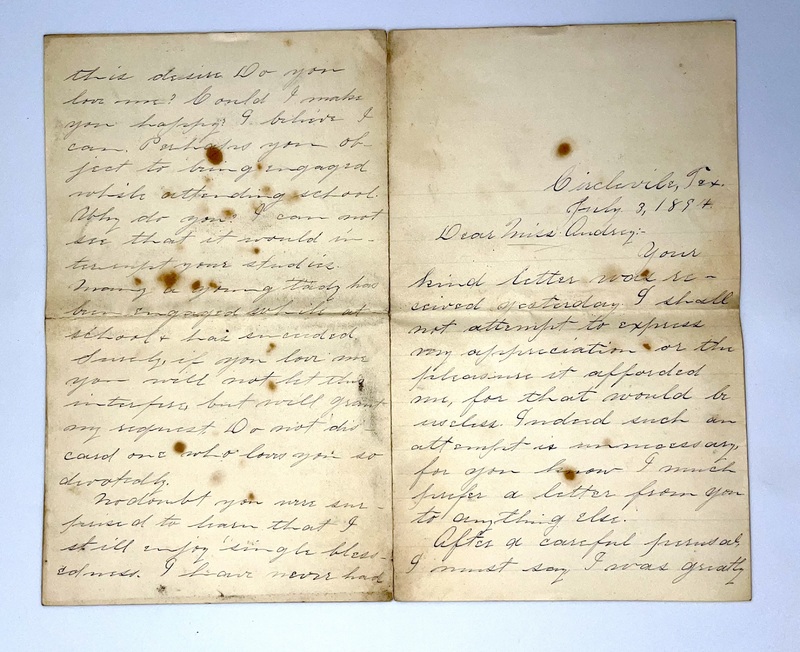 this desire Do you
love me? Could I make
you happy? I believe I
can. Perhaps you ob-
ject to being engaged
while attending school.
Why do you? I can not
see that it would in-
terrupt your studies.
Many a young lady has
been engaged while at
school & has succeeded
Surely, if you love me
you will not let this
interfere, but will grant
my request. Do not dis
card one who loves you so
devotedly.
No doubt you were sur-
prised to learn that I
still enjoy single bless-
edness. I have never had
Circleville, Tex.
July 3, 1894
Dear Miss Audrey:-
Your
kind letter was re-
ceived yesterday. I shall
not attempt to express
my appreciation or the
pleasure it afforded
me, for that would be
useless. Indeed such an
attempt is unnecessary,
for you know I much
prefer a letter from you
to anything else.
After a careful perusal
I must say I was greatly